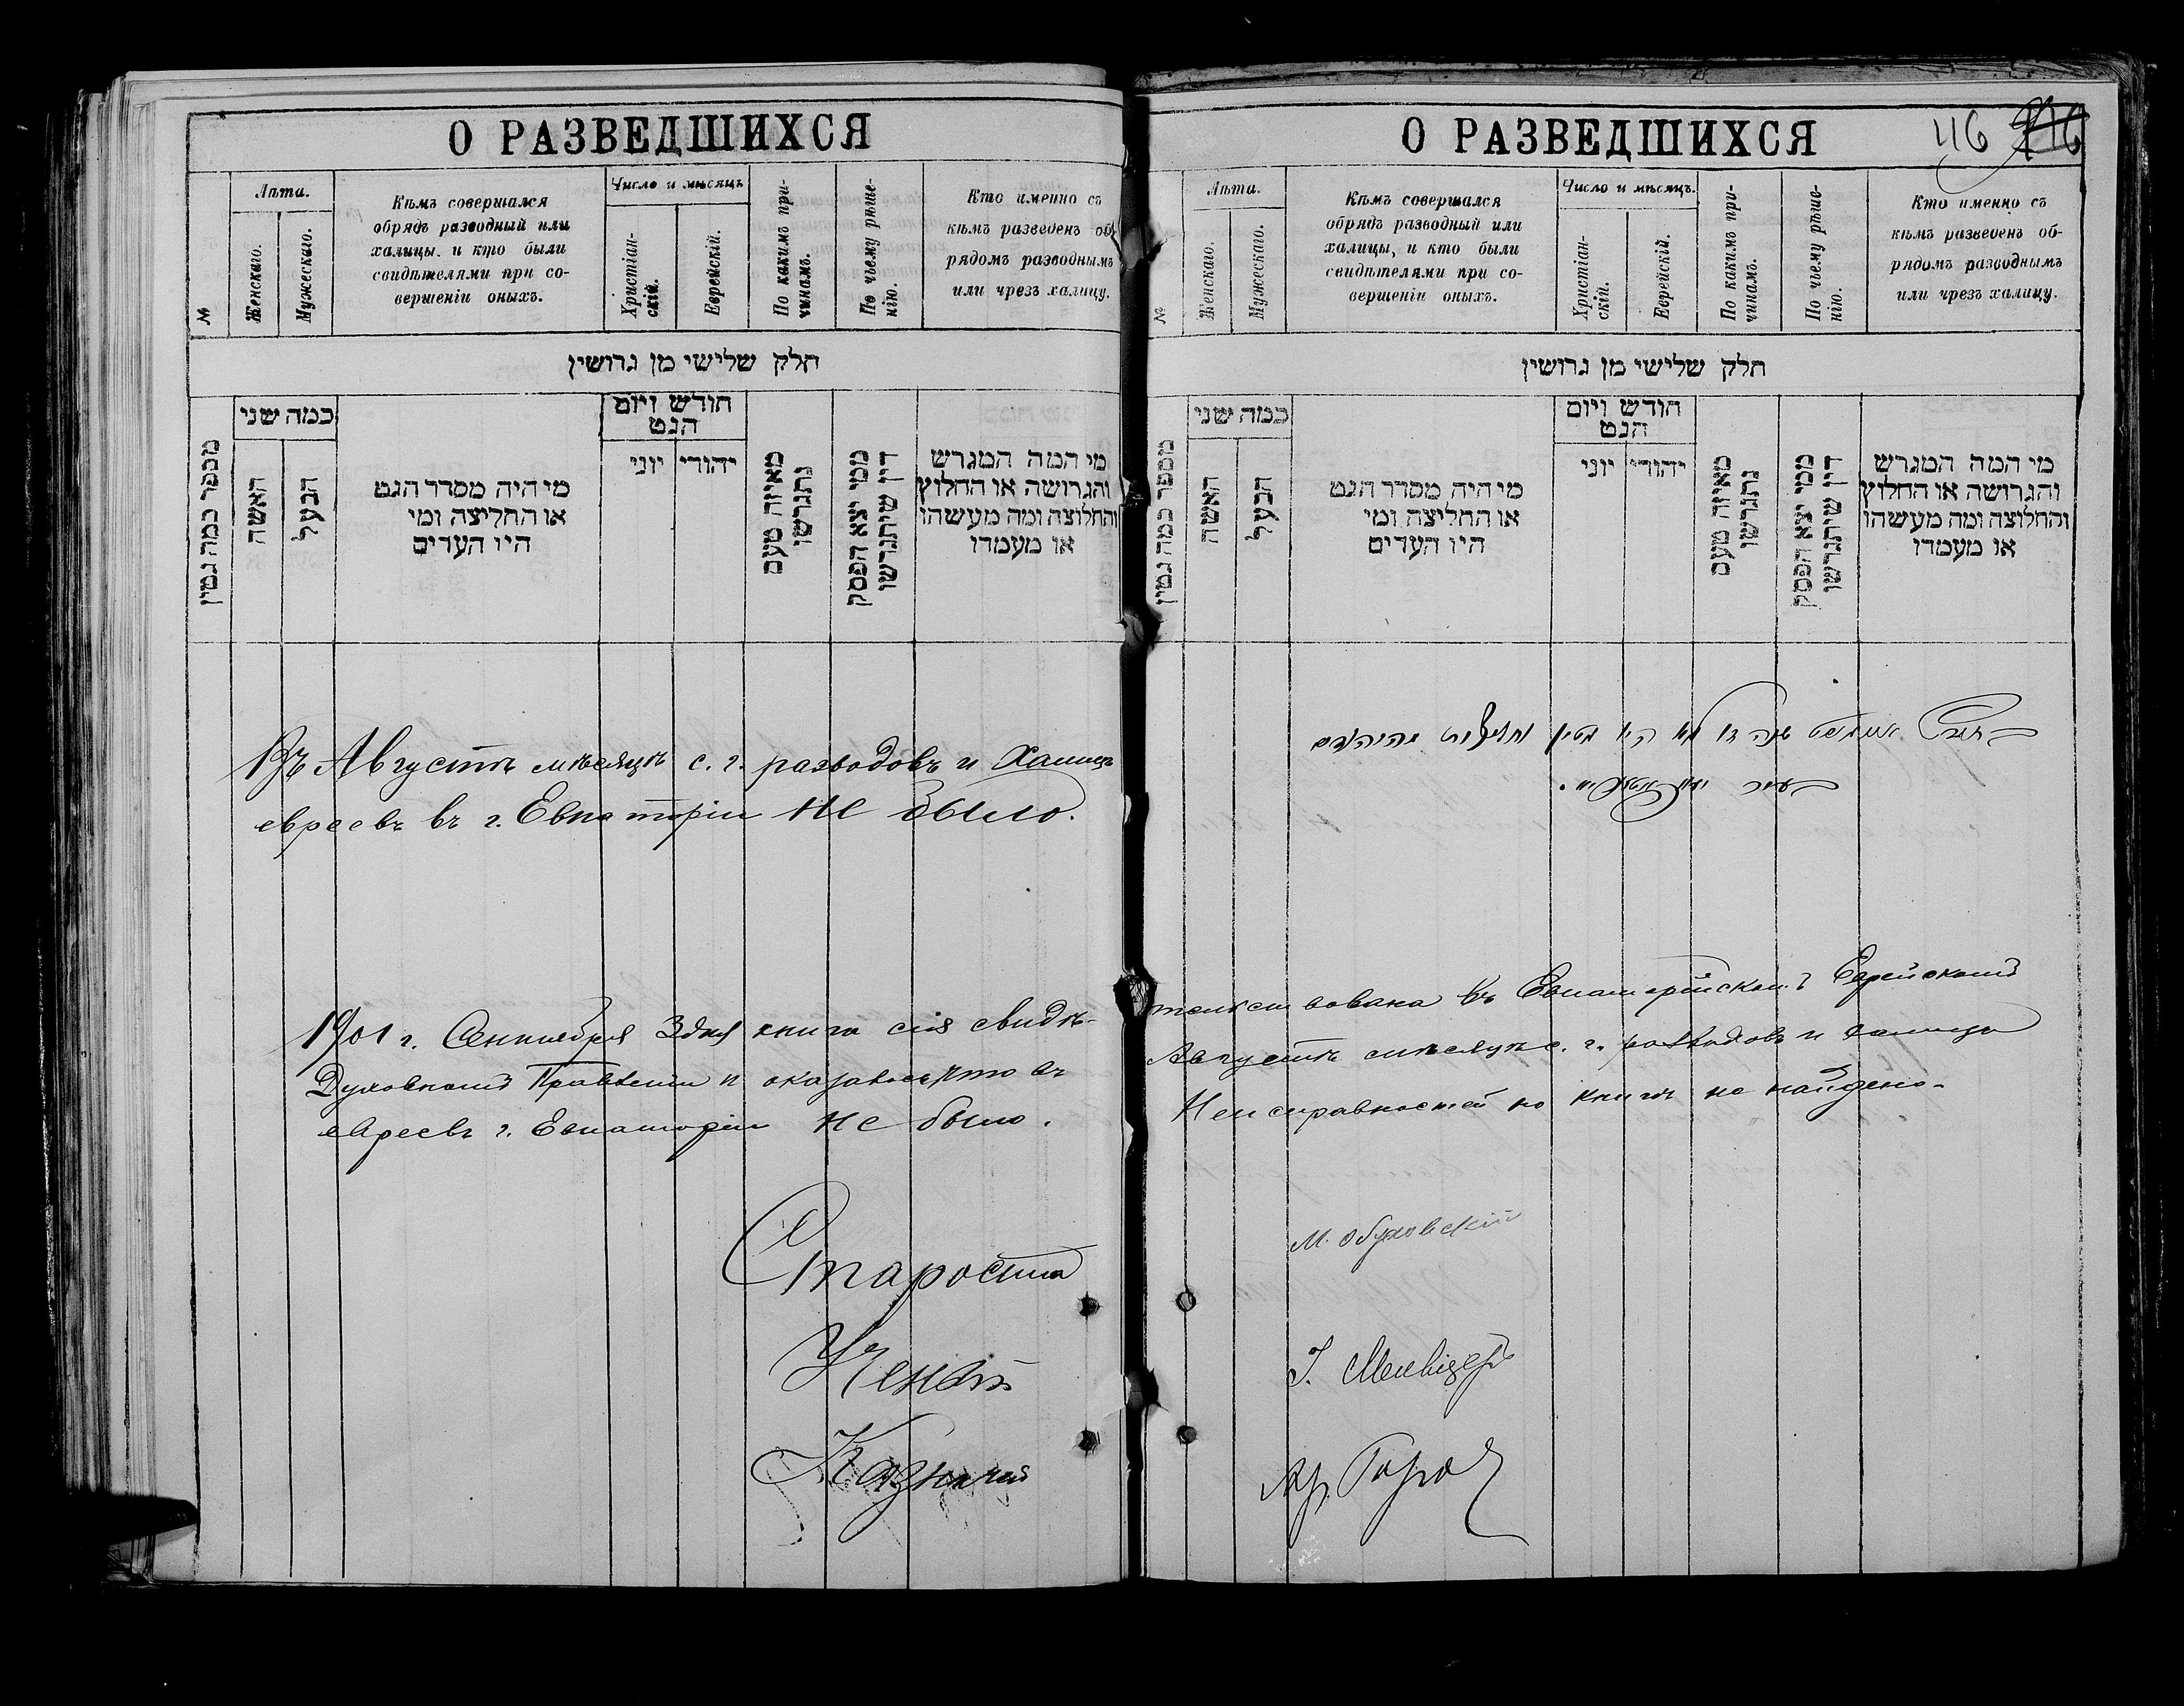 О РАЗВЕДШИХСЯ
№
Лѣта.
Женскаго.
Мужескаго.
Кѣмъ совершался
обрядъ разводный или
халицы, и кто были
свидѣтелями при со-
вершеніи оныхъ.
Число и мѣсяцъ
Христіан-
скій.
Еврейскій.
По какимъ при-
чинамъ.
По чьему рѣше-
нію.
Кто именно съ
кѣмъ разведенъ об
рядомъ разводнымъ
или чрезъ халицу.
חלק שלישי מן גרושין
מספר כמה גטין
כמה שני
האשה
הבעל
מי היה מסדר הגט
או החליצה ומי
היו העדים
חודש ויום
הגט
יהודי
יוני
מאיזה טעם
נתגרשו
ממי יצא הפסק
דין שיתגרשו
מי המה המגרש
והגרושה או החלוץ
והחלוצה ומה מעשהו
או מעמדו
Въ Августѣ мѣсяцѣ с. г. разводовъ и Халицъ
евреевъ въ г. Евпаторіи не было.
1901 г. Сентября 3 дня книга сія свидѣ-
Духовномъ Правленіи и оказалось что въ
евреевъ г. Евпаторіи не было.
Староста
Ученый
Казначей
О РАЗВЕДШИХСЯ
116
№
Лѣта.
Женскаго.
Мужескаго.
Кѣмъ совершался
обрядъ разводный или
халицы, и кто были
свидѣтелями при со-
вершеніи оныхъ.
Число и мѣсяцъ.
Христіан-
скій.
Еврейскій.
По какимъ при-
чинамъ.
По чьему рѣше-
нію.
Кто именно съ
кѣмъ разведенъ об-
рядомъ разводнымъ
или чрезъ халицу.
חלק שלישי מן גרושין
מספר כמה גטין
כמה שני
האשה
הבעל
מי היה מסדר הגט
או החליצה ומי
היו העדים
חודש ויום
הגט
יהודי
יוני
מאיזה טעם
נתגרשו
ממי יצא הפסק
דין שיתגרשו
מי המה המגרש
והגרושה או החלוץ
והחלוצה ומה מעשהו
או מעמדו
тельствована въ Евпаторійскомъ Еврейскомъ
Августѣ мѣсяцѣ с. г. разводовъ и халицъ
Неисправностей по книгѣ не найдено.
М. Обуховскій